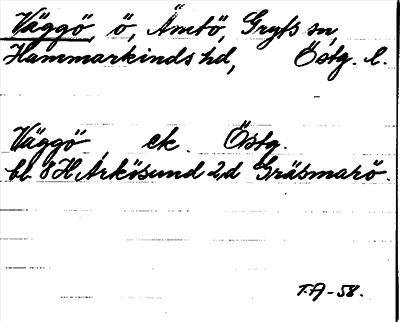 Väggö, ö, Ämtö, Gryts sn,
Hammarkinds hd, Östg. l.
Väggö ek. Östg.
bl. 8H Arkösund 2,d Gräsmarö.
T.A-58.